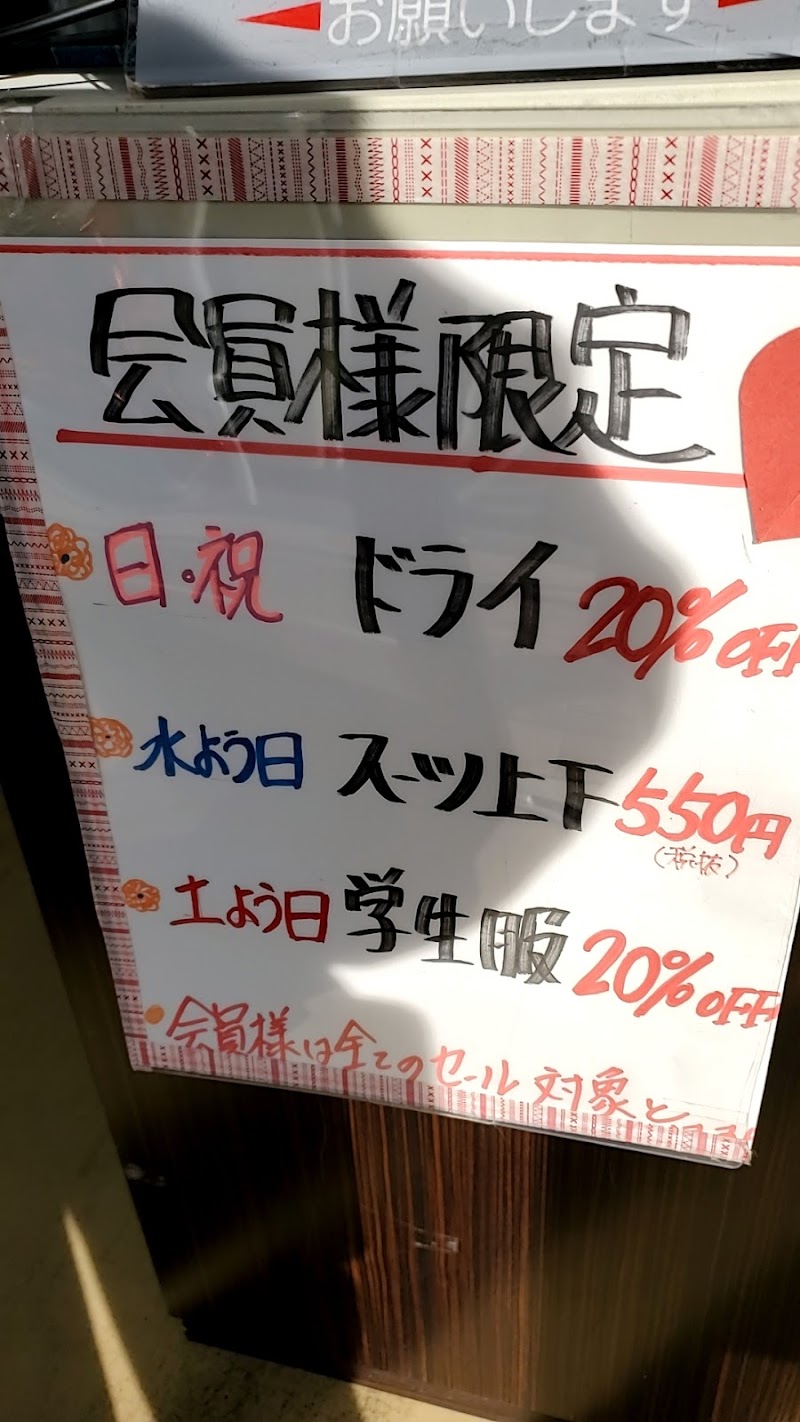 お願いします
会員様限定
日・祝 ドライ 20% OFF
水よう日 スーツ上下 550円
(税抜)
土よう日 学生服 20% OFF
会員様は全てのセール対象と